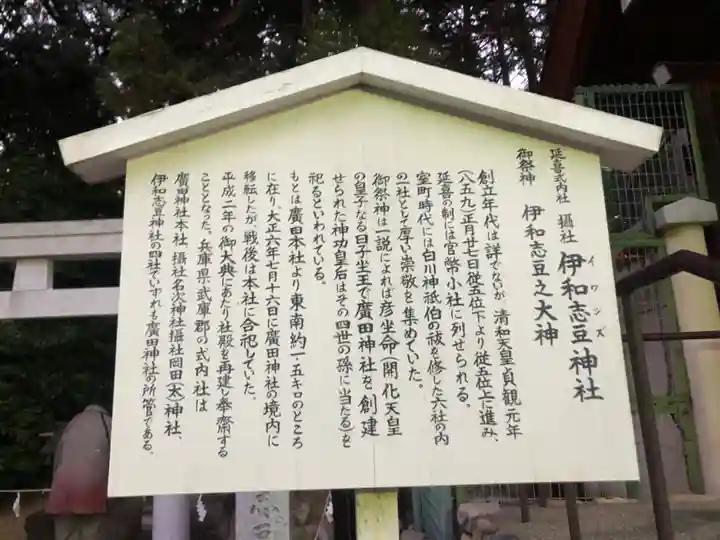 延喜式内社 攝社 伊和志豆神社
イワシズ
御祭神 伊和志豆之大神
創立年代は詳でないが 清和天皇貞観元年
(八五九)正月廿七日従五位下より従五位上に進み、
延喜の制には官幣小社に列せられる。
室町時代には白川神祇伯の祓を修した六社の内
の一社として厚い崇敬を集めていた。
御祭神は一説によれば彦坐命(開化天皇
の皇子なる日子坐王で廣田神社を創建
せられた神功皇后はその四世の孫に当たる)を
祀るといわれている。
もとは廣田本社より東南約一・五キロのところ
に在り、大正六年七月十六日に廣田神社の境内に
移転したが、戦後は本社に合祀していた。
平成二年の御大典にあたり社殿を再建し奉齋する
こととなった。兵庫県武庫郡の式内社は
廣田神社本社、攝社名次神社攝社岡田(太)神社、
伊和志豆神社の四社でいずれも廣田神社の所管である。